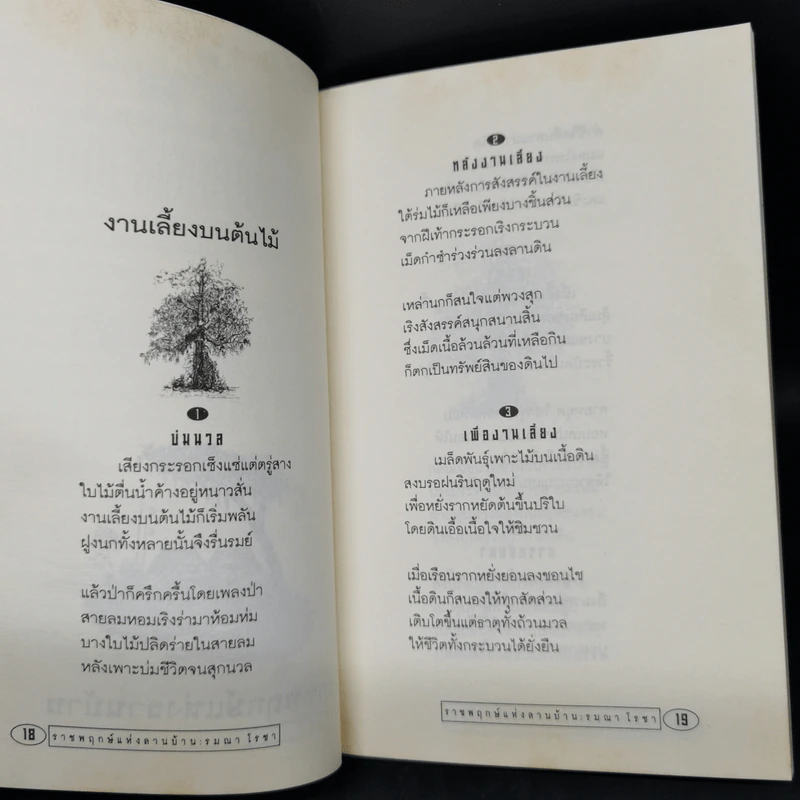 งานเลี้ยงบนต้นไม้
1
บ่มนวล
เสียงกระรอกเซ็งแซ่แต่ตรู่สาง
ใบไม้ตื่นน้ำค้างอยู่หนาวสั่น
งานเลี้ยงบนต้นไม้ก็เริ่มพลัน
ฝูงนกทั้งหลายนั้นจึงรื่นรมย์
แล้วป่าก็ครึกครื้นโดยเพลงป่า
สายลมหอมเริงร่ามาห้อมห่ม
บางใบไม้ปลิดร่ายในสายลม
หลังเพาะบ่มชีวิตจนสุกนวล
18
ราชพฤกษ์แห่งลานบ้าน : รมณา โรชา
2
หลังงานเลี้ยง
ภายหลังการสังสรรค์ในงานเลี้ยง
ใต้ร่มไม้ก็เหลือเพียงบางชิ้นส่วน
จากฝีเท้ากระรอกเริงกระบวน
เม็ดกำซำร่วงร่วนลงลานดิน
เหล่านกก็สนใจแต่พวงสุก
เริงสังสรรค์สนุกสนานสิ้น
ซึ่งเม็ดเนื้อล้วนล้วนที่เหลือกิน
ก็ตกเป็นทรัพย์สินของดินไป
3
เพื่องานเลี้ยง
เมล็ดพันธุ์เพาะไม้บนเนื้อดิน
สงบรอฝนรินฤดูใหม่
เพื่อหยั่งรากหยัดต้นขึ้นปริใบ
โดยดินเอื้อเนื้อใจให้ชิมชวน
เมื่อเรือนรากหยั่งยอนลงชอนไช
เนื้อดินก็สนองให้ทุกสัดส่วน
เติบโตขึ้นแต่ธาตุทั้งถ้วนมวล
ให้ชีวิตทั้งกระบวนได้ยั่งยืน
ราชพฤกษ์แห่งลานบ้าน : รมณา โรชา
19